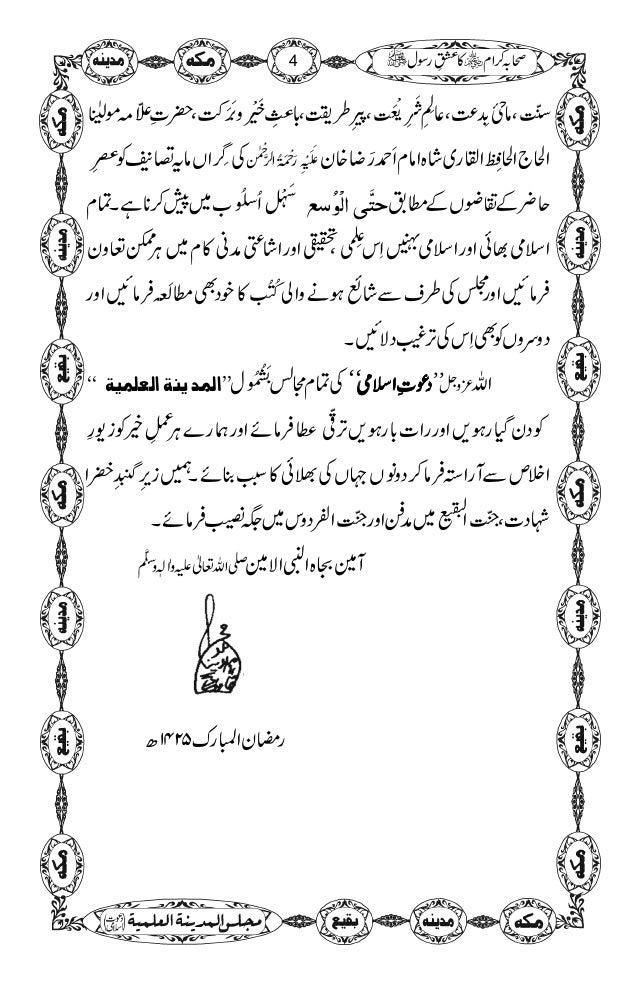 صحابہ کرام ﷺ کا عشق رسول ﷺ
4
مکہ
مدینہ
سنّت، ماحیٔ بِدعت، عالِمِ شَرِیْعَت، پیرِ طریقت، باعثِ خَیْر و بَرَکت، حضرتِ علّامہ مولیٰنا
الحاج الحافِظ القاری شاہ امام اَحمد رَضا خان عَلَیْہِ رَحْمَۃُ الرَّحْمٰن کی گِراں مایہ تصانیف کو عصرِ
حاضر کے تقاضوں کے مطابق حتَّی الْوُسع سَہْل اُسلُوب میں پیش کرنا ہے ۔ تمام
اسلامی بھائی اور اسلامی بہنیں اِس عِلمی ،تحقیقی اور اشاعتی مدنی کام میں ہرممکن تعاون
فرمائیں اورمجلس کی طرف سے شائع ہونے والی کُتُب کا خودبھی مطالعہ فرمائیں اور
دوسروں کو بھی اِس کی ترغیب دلائیں ۔
اللہ عزوجل ’’دعوتِ اسلامی‘‘ کی تمام مجالس بَشُمُول ’’المدینۃ العلمیۃ‘‘
کو دن گیارہویں اور رات بارہویں ترقّی عطا فرمائے اور ہمارے ہر عملِ خیر کو زیورِ
اخلاص سے آراستہ فرما کر دونوں جہاں کی بھلائی کا سبب بنائے ۔ہمیں زیرِ گنبدِ خضرا
شہادت، جنّت البقیع میں مدفن اور جنّت الفردوس میں جگہ نصیب فرمائے ۔
آمین بجاہ النبی الامین صلی اللہ تعالیٰ علیہ واٰلہٖ وسلَّم
رمضان المبارک ۱۴۲۵ھ
مکہ
مدینہ
بقیع
مکہ
مدینہ
بقیع
مکہ
مکہ
مدینہ
بقیع
مکہ
مدینہ
بقیع
مکہ
مکہ
مدینہ
بقیع
مجلس المدینۃ العلمیۃ (دعوت اسلامی)